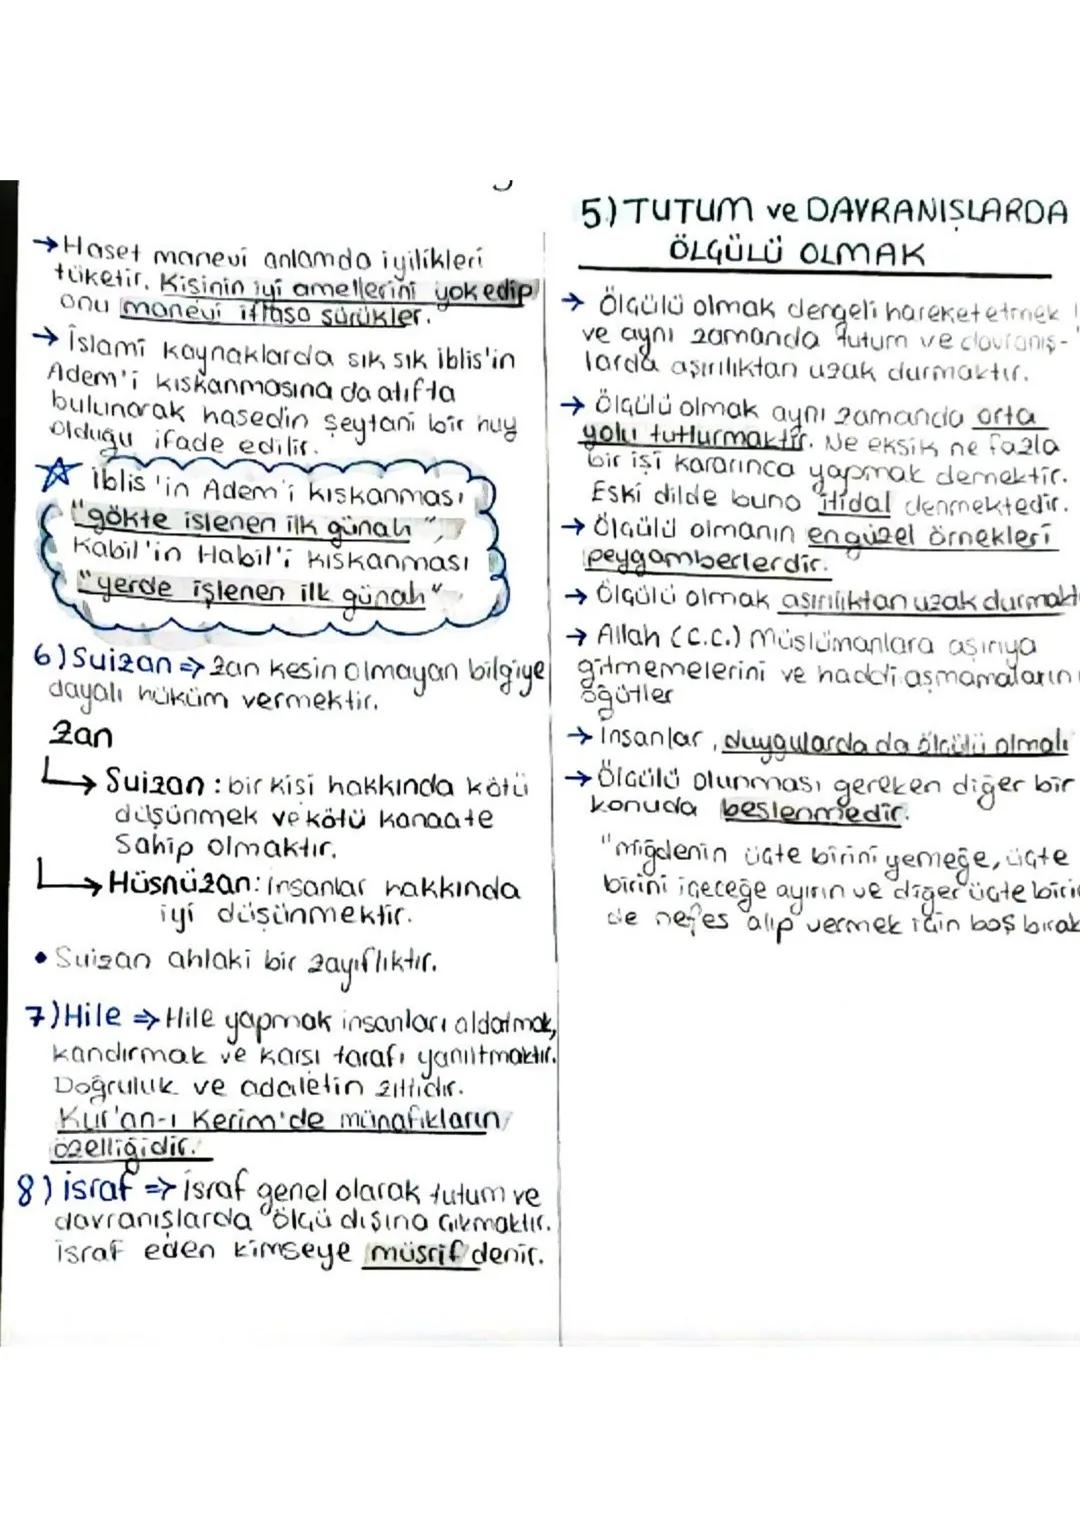 →Haset manevi anlamda iyilikleri
tüketir. Kişinin iyi amellerini yok edip
onu manevi iflasa sürükler.
→ İslamî kaynaklarda sık sık iblis'in
Adem'i kıskanmasına da atıfta
bulunarak hasedin şeytani bir huy
olduğu ifade edilir.
☆ iblis'in Adem'i kıskanması
"gökte işlenen ilk günah",
Kabil'in Habil'i kıskanması
"yerde işlenen ilk günah"
6) Suizan => zan kesin olmayan bilgiye
dayalı hüküm vermektir.
zan
↳ Suizan : bir kişi hakkında kötü
düşünmek ve kötü kanaate
Sahip olmaktır.
↳ Hüsnüzan: insanlar hakkında
iyi düşünmektir.
• Suizan ahlaki bir zayıflıktır.
7) Hile => Hile yapmak insanları aldatmak,
kandırmak ve karşı tarafı yanıltmaktır.
Doğruluk ve adaletin zıttıdır.
Kur'an-ı Kerim'de münafıkların
özelliğidir.
8) israf => israf genel olarak tutum ve
davranışlarda ölçü dışına çıkmaktır.
israf eden kimseye müsrif denir.
5) TUTUM ve DAVRANIŞLARDA
ÖLÇÜLÜ OLMAK
→ Ölçülü olmak dengeli hareket etmek
ve aynı zamanda tutum ve davranış-
larda aşırılıktan uzak durmaktır.
→ Ölçülü olmak aynı zamanda orta
yolu tutturmaktır. Ne eksik ne fazla
bir işi kararınca yapmak demektir.
Eski dilde buna itidal denmektedir.
→ Ölçülü olmanın en güzel örnekleri
peygamberlerdir.
→ Ölçülü olmak aşırılıktan uzak durmakt
→ Allah (C.C.) Müslümanlara aşırıya
gitmemelerini ve haddi aşmamaların
öğütler
→ İnsanlar, duygularda da ölçülü olmalı
→ Ölçülü olunması gereken diğer bir
konuda beslenmedir.
"Miğdenin üçte birini yemeğe, üçte
birini içeceğe ayırın ve diğer üçte birin
de nefes alıp vermek için boş bırak